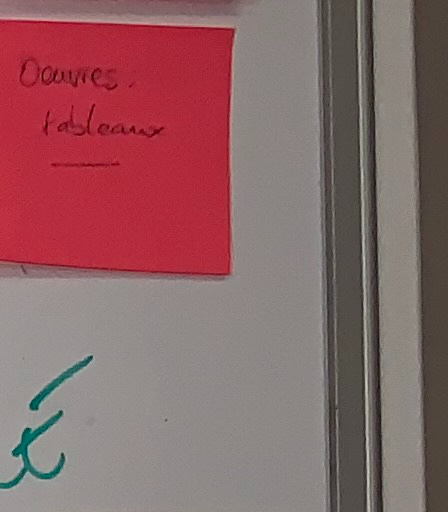 Oeuvres.
tableaux
é